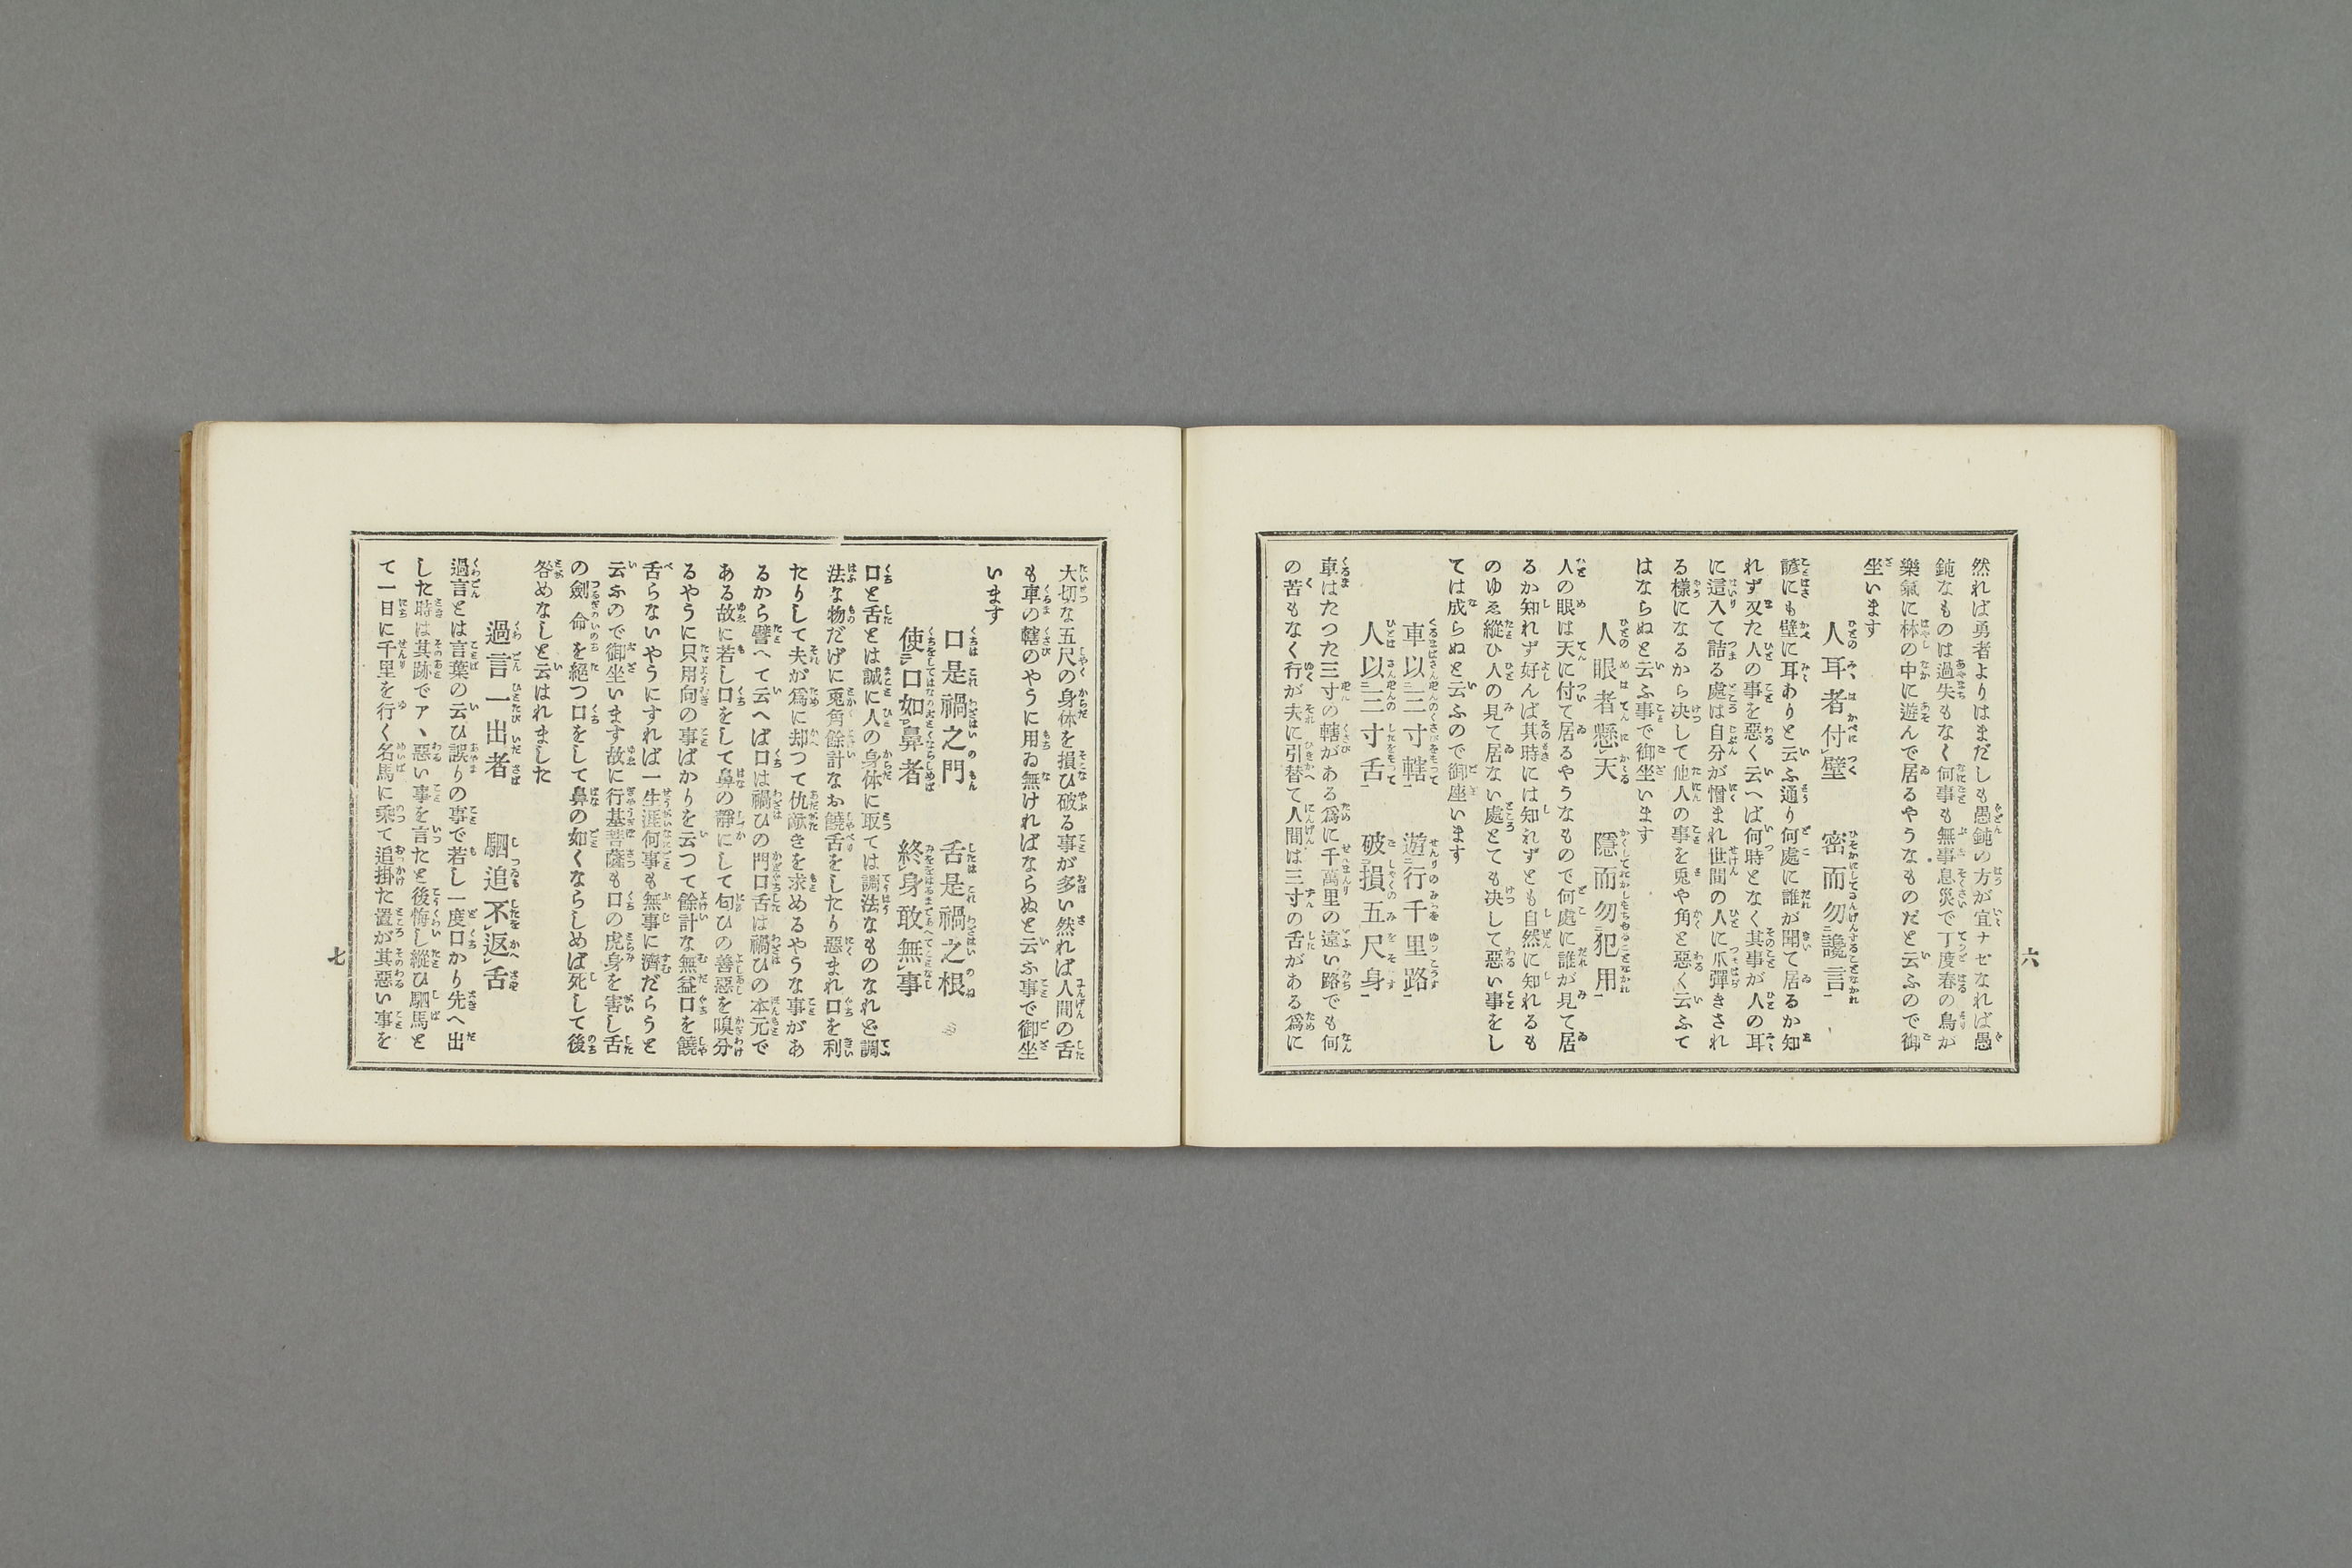 然れば勇者よりはまだしも愚鈍の方が宜ナゼなれば愚
鈍なものは過失もなく何事も無事息災で丁度春の鳥が
樂氣に林の中に遊んで居るやうなものだと云ふので御
坐います
人耳者付壁　密而勿讒言
諺にも壁に耳ありと云ふ通り何處に誰が聞て居るか知
れず又た人の事を惡く云へば何時となく其事が人の耳
に這入て詰る處は自分が憎まれ世間の人に爪彈きされ
る樣になるから决して他人の事を兎や角と惡く云ふて
はならぬと云ふ事で御坐います
人眼者懸天　隱而勿犯用
人の眼は天に付て居るやうなもので何處に誰が見て居
るか知れず好んば其時には知れずとも自然に知れるも
のゆゑ縱ひ人の見て居ない處とても决して惡い事をし
ては成らぬと云ふので御座います
車以三寸轄　遊行千里路
人以三寸舌　破損五尺身
車はたつた三寸の轄がある爲に千萬里の遠い路でも何
の苦もなく行が夫に引替て人間は三寸の舌がある爲に
六
大切な五尺の身体を損ひ破る事が多い然れば人間の舌
も車の轄のやうに用ゐ無ければならぬと云ふ事で御坐
います
口是禍之門　舌是禍之根
使口如鼻者　終身敢無事
口と舌とは誠に人の身体に取ては調法なものなれど調
法な物だけに兎角餘計なお饒舌をしたり惡まれ口を利
たりして夫が爲に却つて仇敵きを求めるやうな事があ
るから譬へて云へば口は禍ひの門口舌は禍ひの本元で
ある故に若し口をして鼻の靜にして匂ひの善惡を嗅分
るやうに只用向の事ばかりを云つて餘計な無益口を饒
舌らないやうにすれば一生涯何事も無事に濟だらうと
云ふので御坐います故に行基菩薩も口の虎身を害し舌
の劍命を絕つ口をして鼻の如くならしめば死して後
咎めなしと云はれました
過言一出者　駟追不返舌
過言とは言葉の云ひ誤りの事で若し一度口から先へ出
した時は其跡でアヽ惡い事を言たと後悔し縱ひ駟馬と
て一日に千里を行く名馬に乘て追掛た置が其惡い事を
七